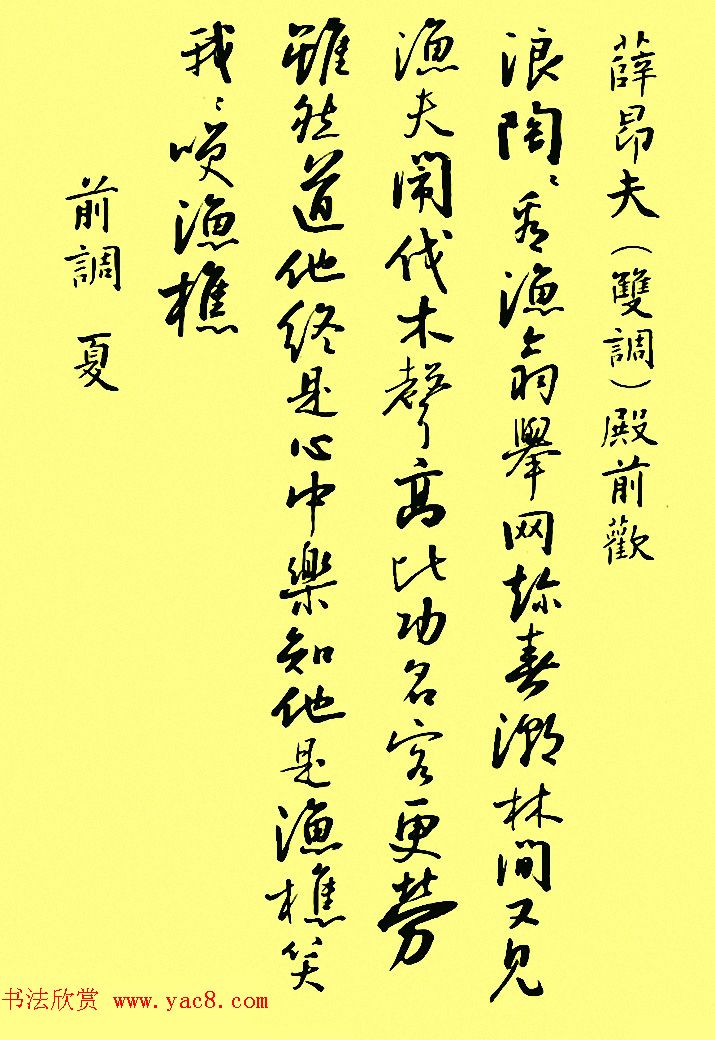 薛昂夫（雙調）殿前歡
浪陶〻看漁翁舉网趂春潮林間又見
漁夫閙伐木聲高比功名客更勞
雖然道他終是心中樂知他是漁樵笑
我〻咲漁樵
前調 夏
书法欣赏 www.yac8.com